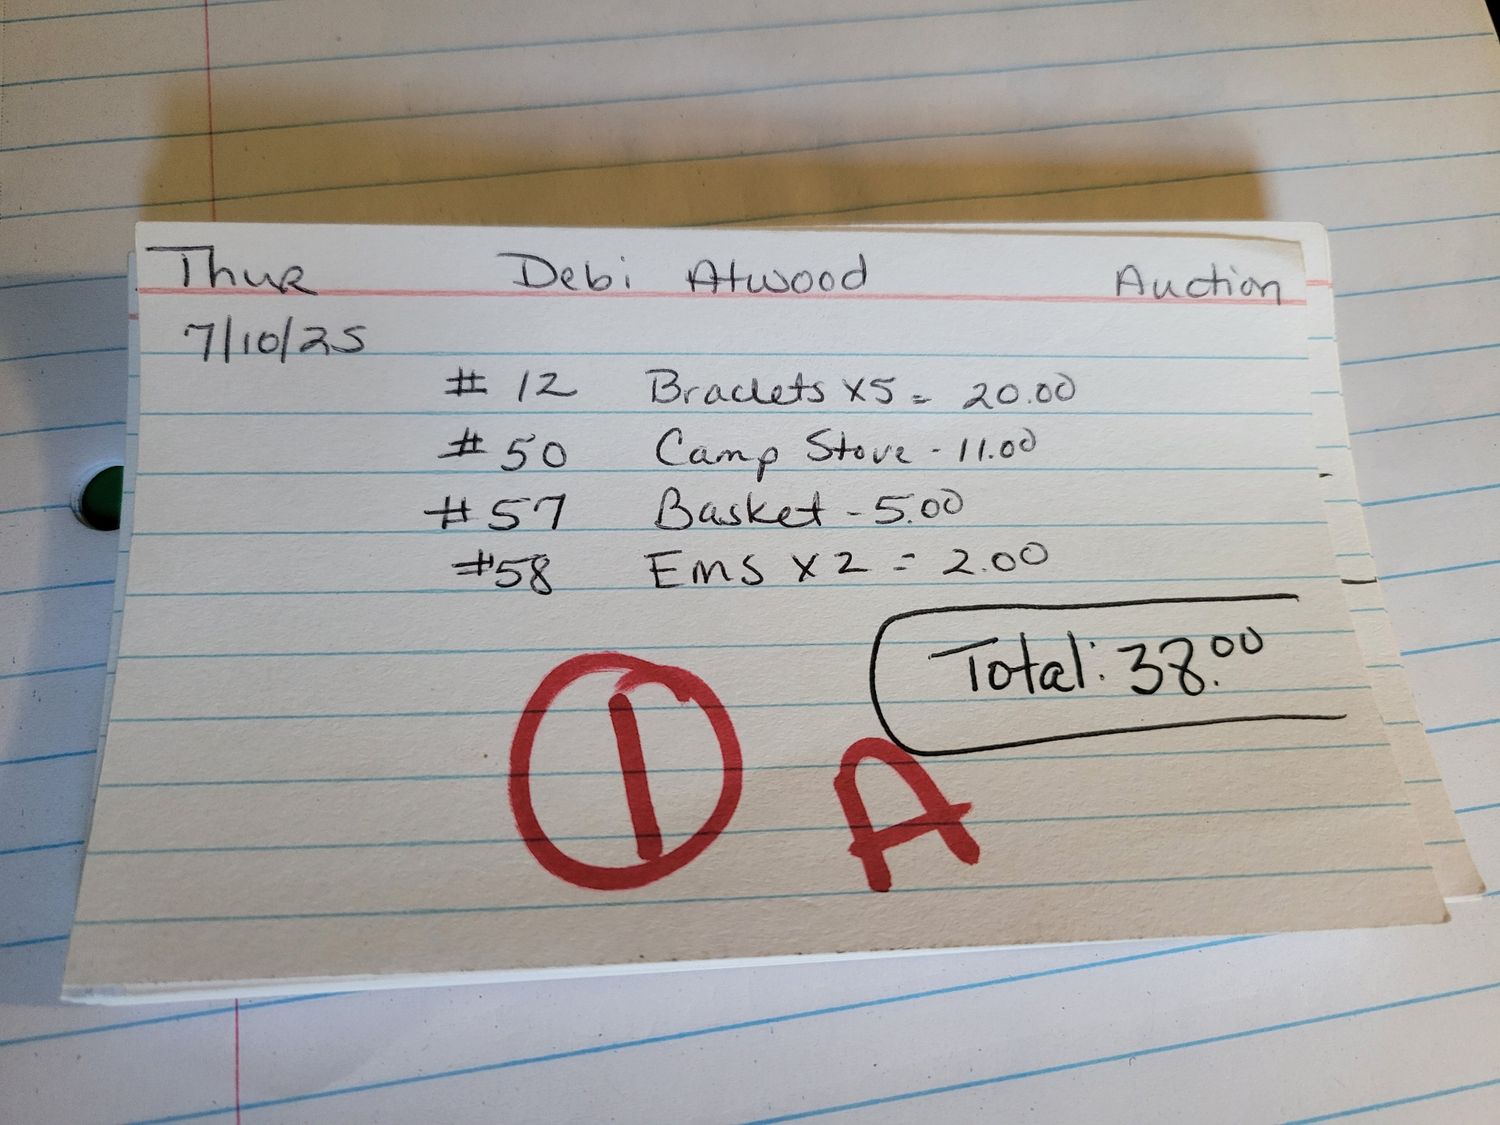 Thur Debi Atwood Auction
7/10/25
# 12 Braclets x5 = 20.00
# 50 Camp Stove - 11.00
# 57 Basket - 5.00
#58 Ems x 2 = 2.00
Total: 38.00
1 A